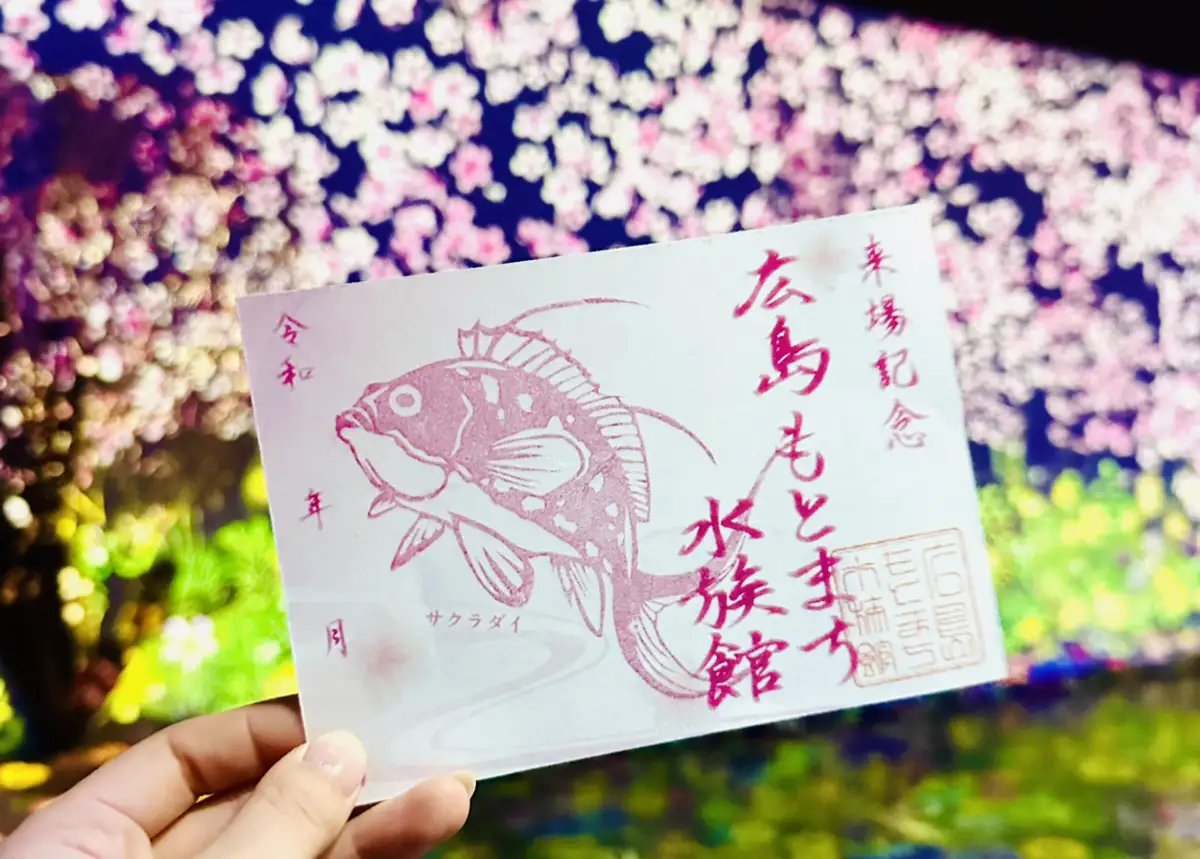 来場記念
広島もとまち
水族館
広島
もとまち
水族館
サクラダイ
令和
年
月